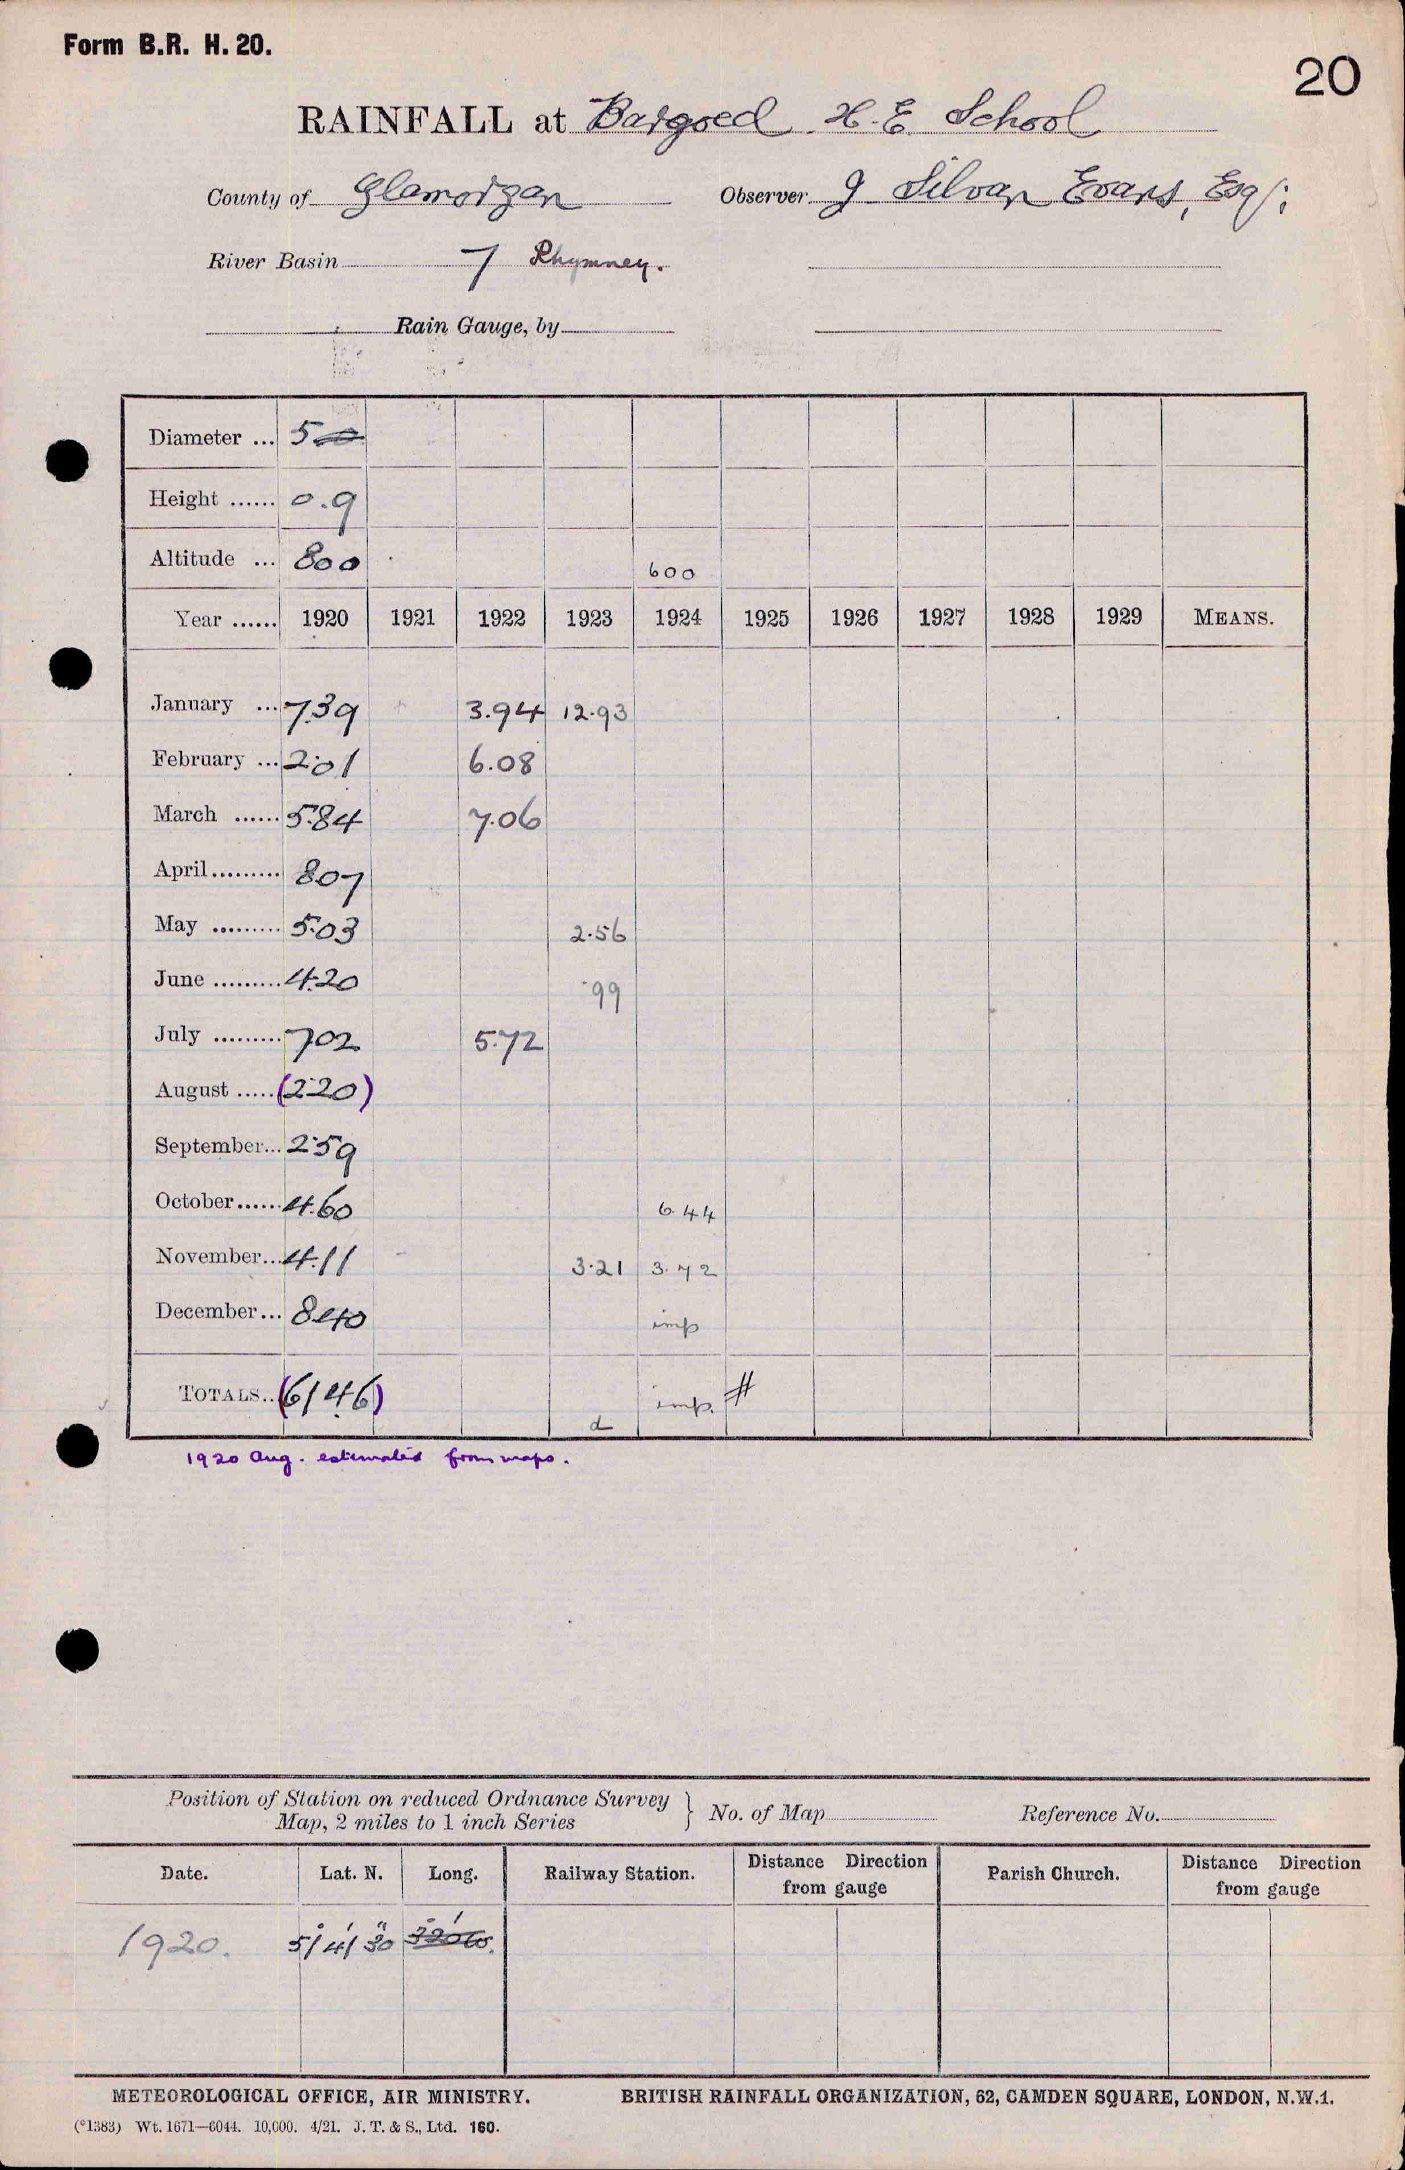 Form B.R. H. 20.
20
RAINFALL at Bargoed H.E. School
County of Glamorgan Observer J Silvan Evans, Esq;
River Basin 7 Rhymney.
Rain Gauge, by
Diameter ... 5
Height ...... 0.9
Altitude ... 800 600
Year ...... 1920 1921 1922 1923 1924 1925 1926 1927 1928 1929 MEANS.
January ... 7.39 3.94 12.93
February ... 2.01 6.08
March ...... 5.84 7.06
April ......... 8.07
May ......... 5.03 2.56
June ......... 4.20 .99
July ......... 7.02 5.72
August ..... (2.20)
September... 2.59
October...... 4.60 6.44
November... 4.11 3.21 3.72
December... 8.40 imp
TOTALS.. (61.46) d imp. #
1920 Aug. estimated from maps.
Position of Station on reduced Ordnance Survey
Map, 2 miles to 1 inch Series } No. of Map Reference No.
Date. Lat. N. Long. Railway Station. Distance Direction from gauge Parish Church. Distance Direction from gauge
1920. 51° 41' 30"
METEOROLOGICAL OFFICE, AIR MINISTRY. BRITISH RAINFALL ORGANIZATION, 62, CAMDEN SQUARE, LONDON, N.W.1.
(*1383) Wt. 1671—6044. 10,000. 4/21. J. T. & S., Ltd. 160.